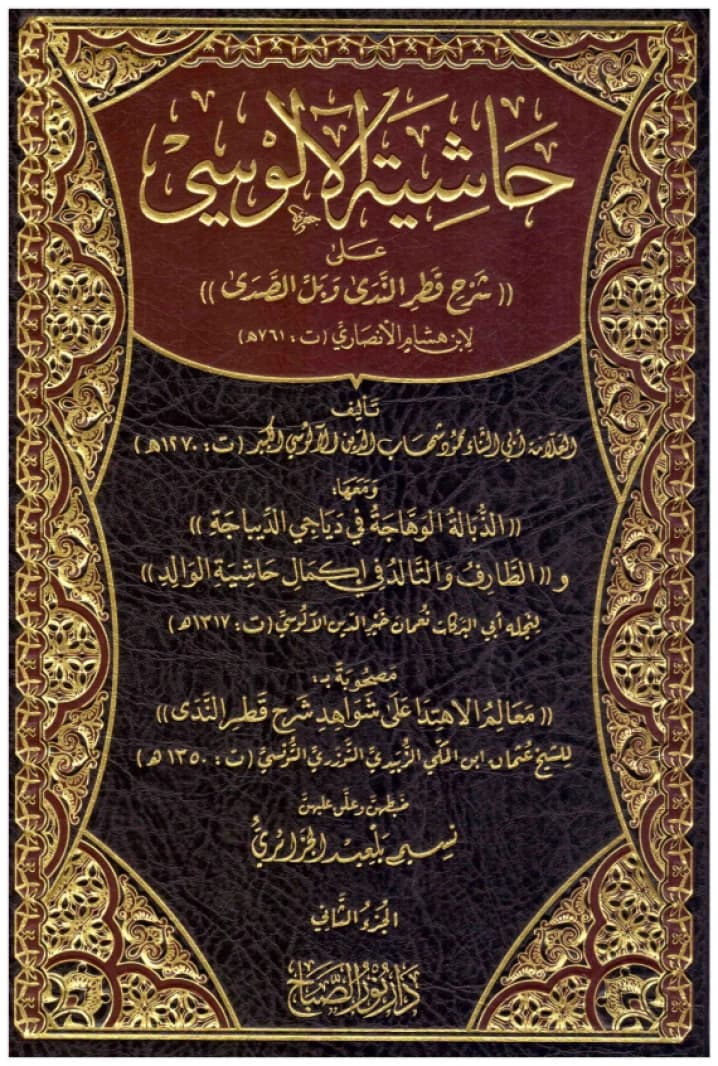 حَاشِيَةُ الآلُوْسِيِّ
عَلَىٰ
((شَرْحِ قَطْرِ النَّدَىٰ وَبَلِّ الصَّدَىٰ))
لِابْنِ هِشَامٍ الأَنْصَارِيِّ (ت: ٧٦١هـ)
تَأْلِيف
العَلَّامَة أَبِي الثَّنَاء مَحْمُود شِهَاب الدِّين الآلُوسِي الكَبِير (ت: ١٢٧٠هـ)
وَمَعَهَا:
((الذُّبَالَةُ الوَهَّاجَةُ فِي دَيَاجِي الدِّيبَاجَةِ))
و((الطَّارِفُ وَالتَّالِدُ فِي إِكْمَالِ حَاشِيَةِ الوَالِدِ))
لِنَجْلِهِ أَبِي البَرَكَات نُعْمَان خَيْرِ الدِّين الآلُوسِيِّ (ت: ١٣١٧هـ)
مَصْحُوبَةً بـ:
((مَعَالِمُ الاهْتِدَا عَلَىٰ شَوَاهِدِ شَرْحِ قَطْرِ النَّدَىٰ))
لِلشَّيْخ عُثْمَان ابن المَكِّي الزُّبَيْدِيِّ التَّوْزَرِيِّ التُّونُسِيِّ (ت: ١٣٥٠هـ)
ضَبَطَهُنَّ وَعَلَّقَ عَلَيْهِنَّ
نَسِيم بَلْعِيد الجَزَائِرِيُّ
الجُزْءُ الثَّانِي
دَارُ نُورِ الصَّبَاحِ